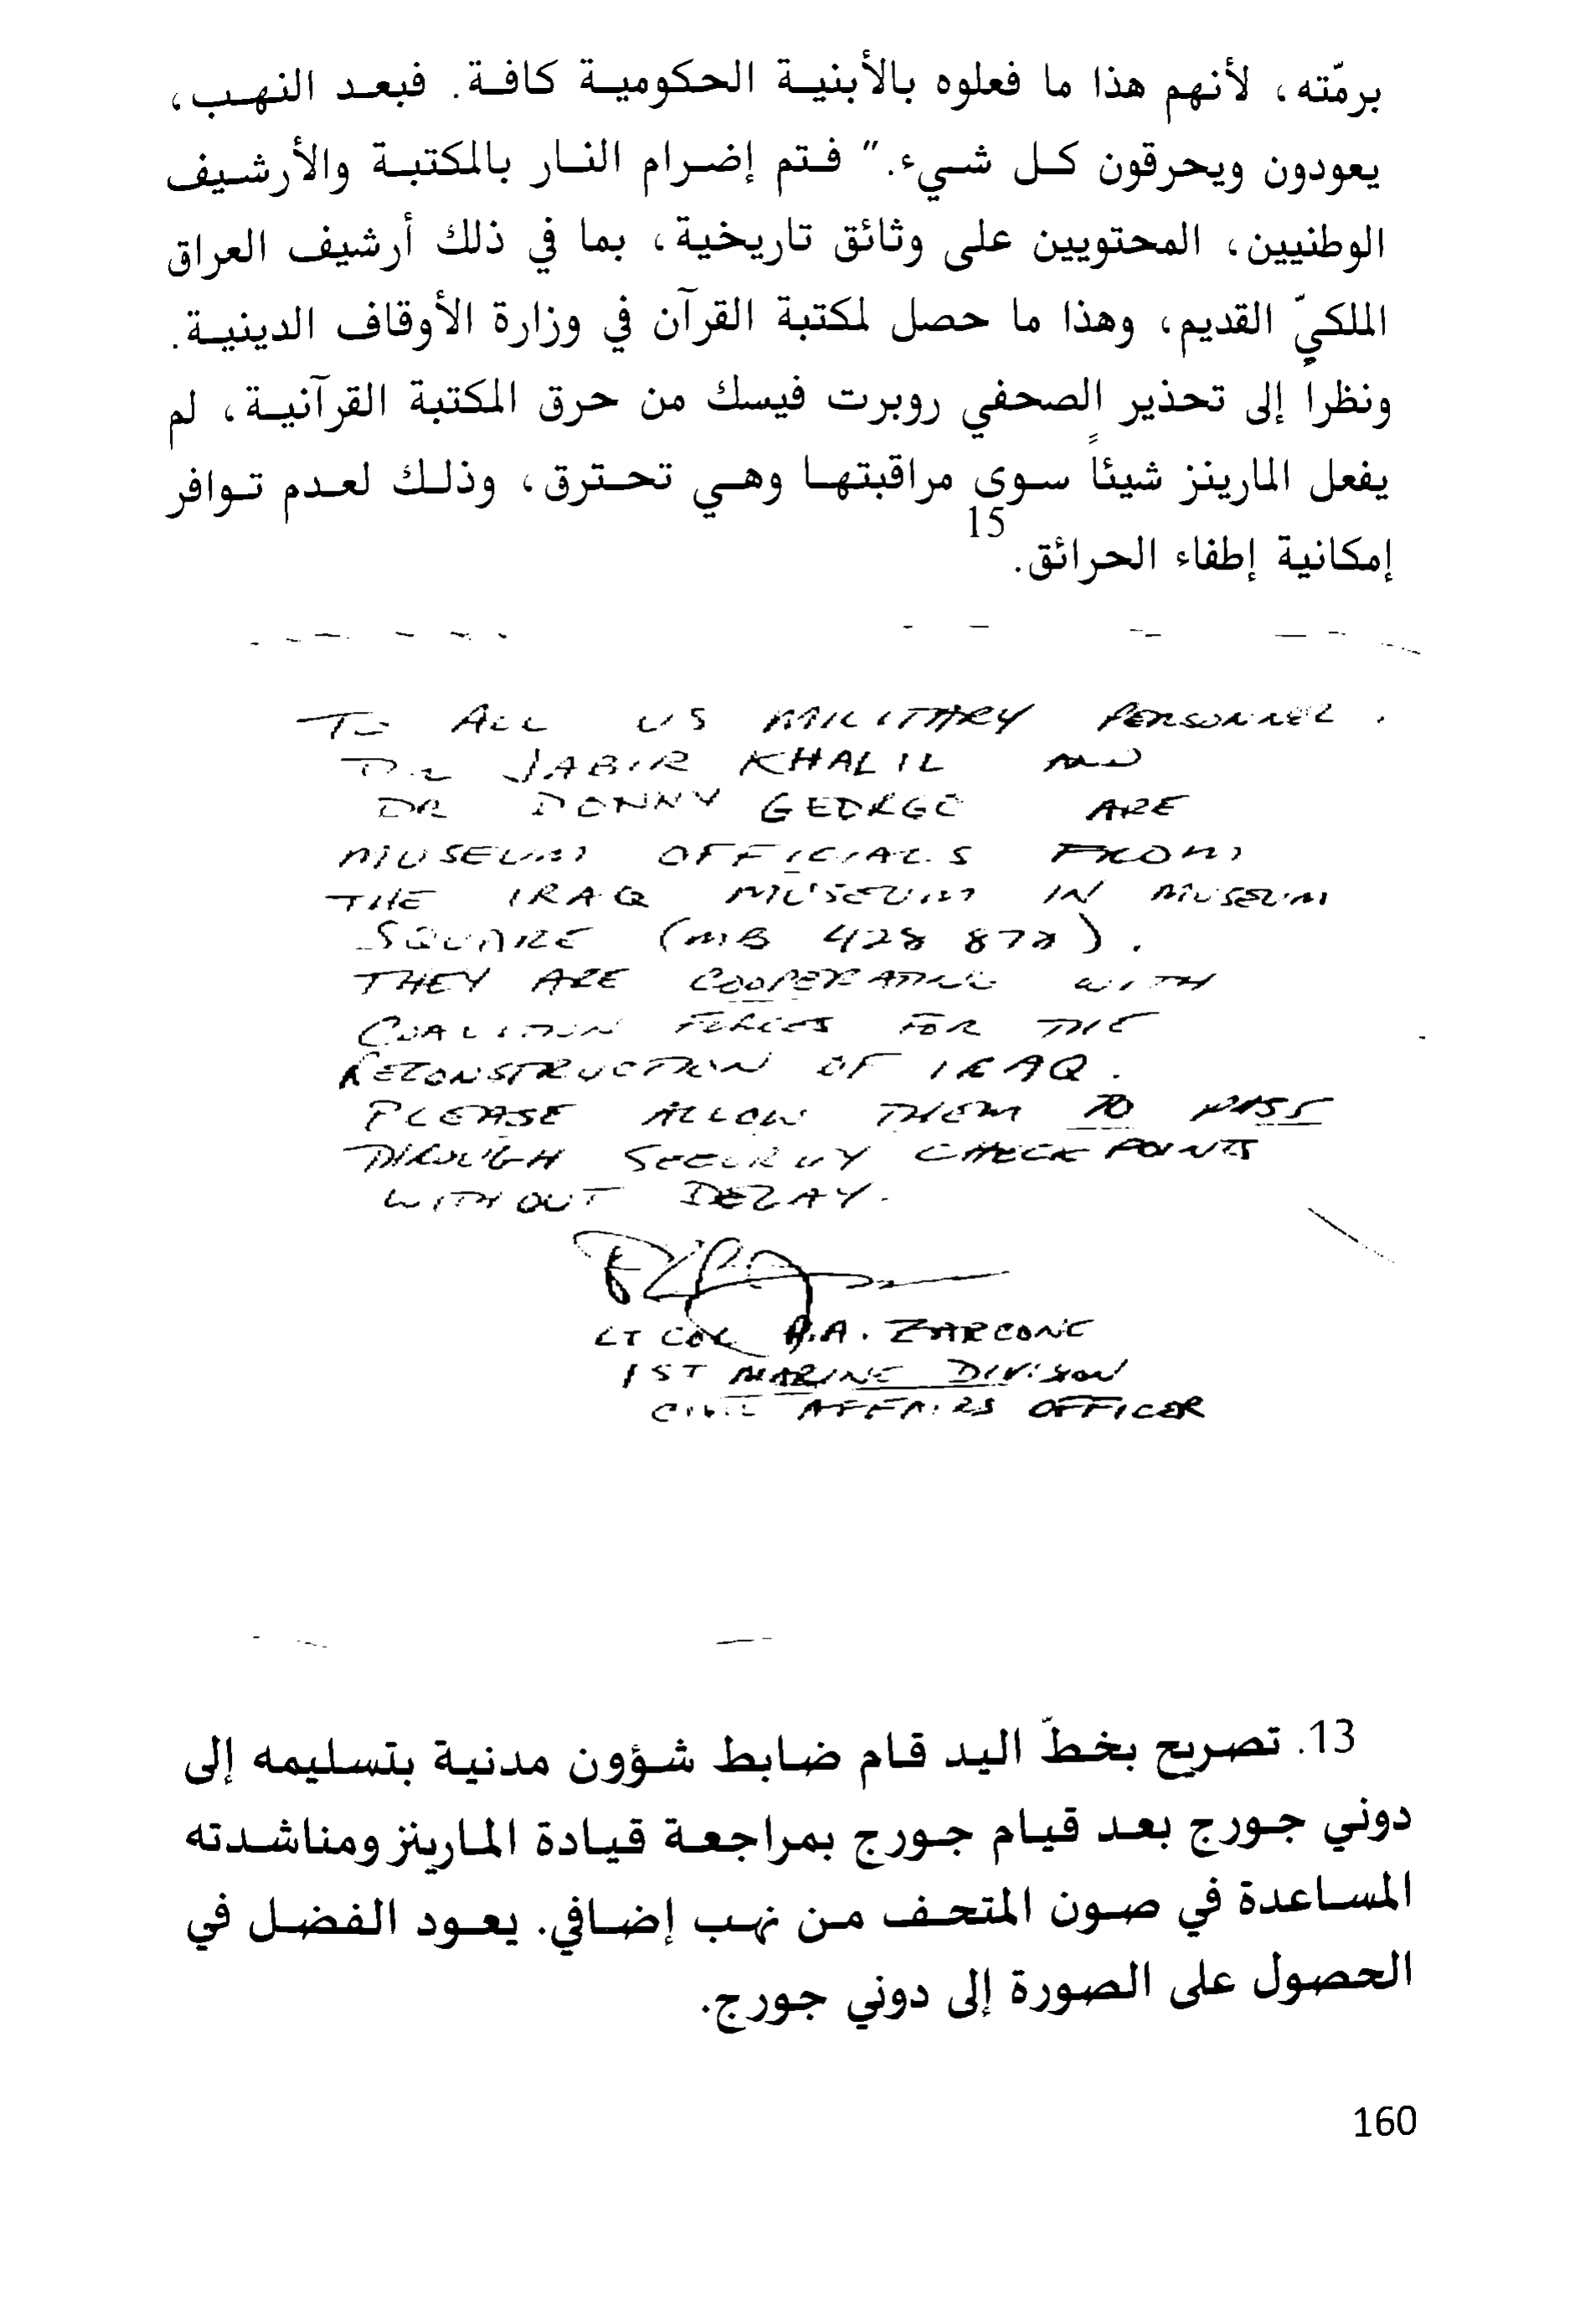 برمّته، لأنهم هذا ما فعلوه بالأبنية الحكومية كافة. فبعد النهب،
يعودون ويحرقون كل شيء." فتم إضرام النار بالمكتبة والأرشيف
الوطنيين، المحتويين على وثائق تاريخية، بما في ذلك أرشيف العراق
الملكيّ القديم، وهذا ما حصل لمكتبة القرآن في وزارة الأوقاف الدينية.
ونظراً إلى تحذير الصحفي روبرت فيسك من حرق المكتبة القرآنية، لم
يفعل المارينز شيئاً سوى مراقبتها وهي تحترق، وذلك لعدم توافر
إمكانية إطفاء الحرائق.15
TO ALL US MILITARY PERSONNEL.
DR JABIR KHALIL AND
DR DONNY GEORGE ARE
MUSEUM OFFICIALS FROM
THE IRAQ MUSEUM IN MUSEUM
SQUARE (MB 428 878).
THEY ARE COOPERATING WITH
COALITION FORCES FOR THE
RECONSTRUCTION OF IRAQ.
PLEASE ALLOW THEM TO PASS
THROUGH SECURITY CHECK POINTS
WITHOUT DELAY.
LT COL A.A. ZARCONE
1ST MARINE DIVISION
CIVIL AFFAIRS OFFICER
13. تصريح بخطّ اليد قام ضابط شؤون مدنية بتسليمه إلى
دوني جورج بعد قيام جورج بمراجعة قيادة المارينز ومناشدته
المساعدة في صون المتحف من نهب إضافي. يعود الفضل في
الحصول على الصورة إلى دوني جورج.
160